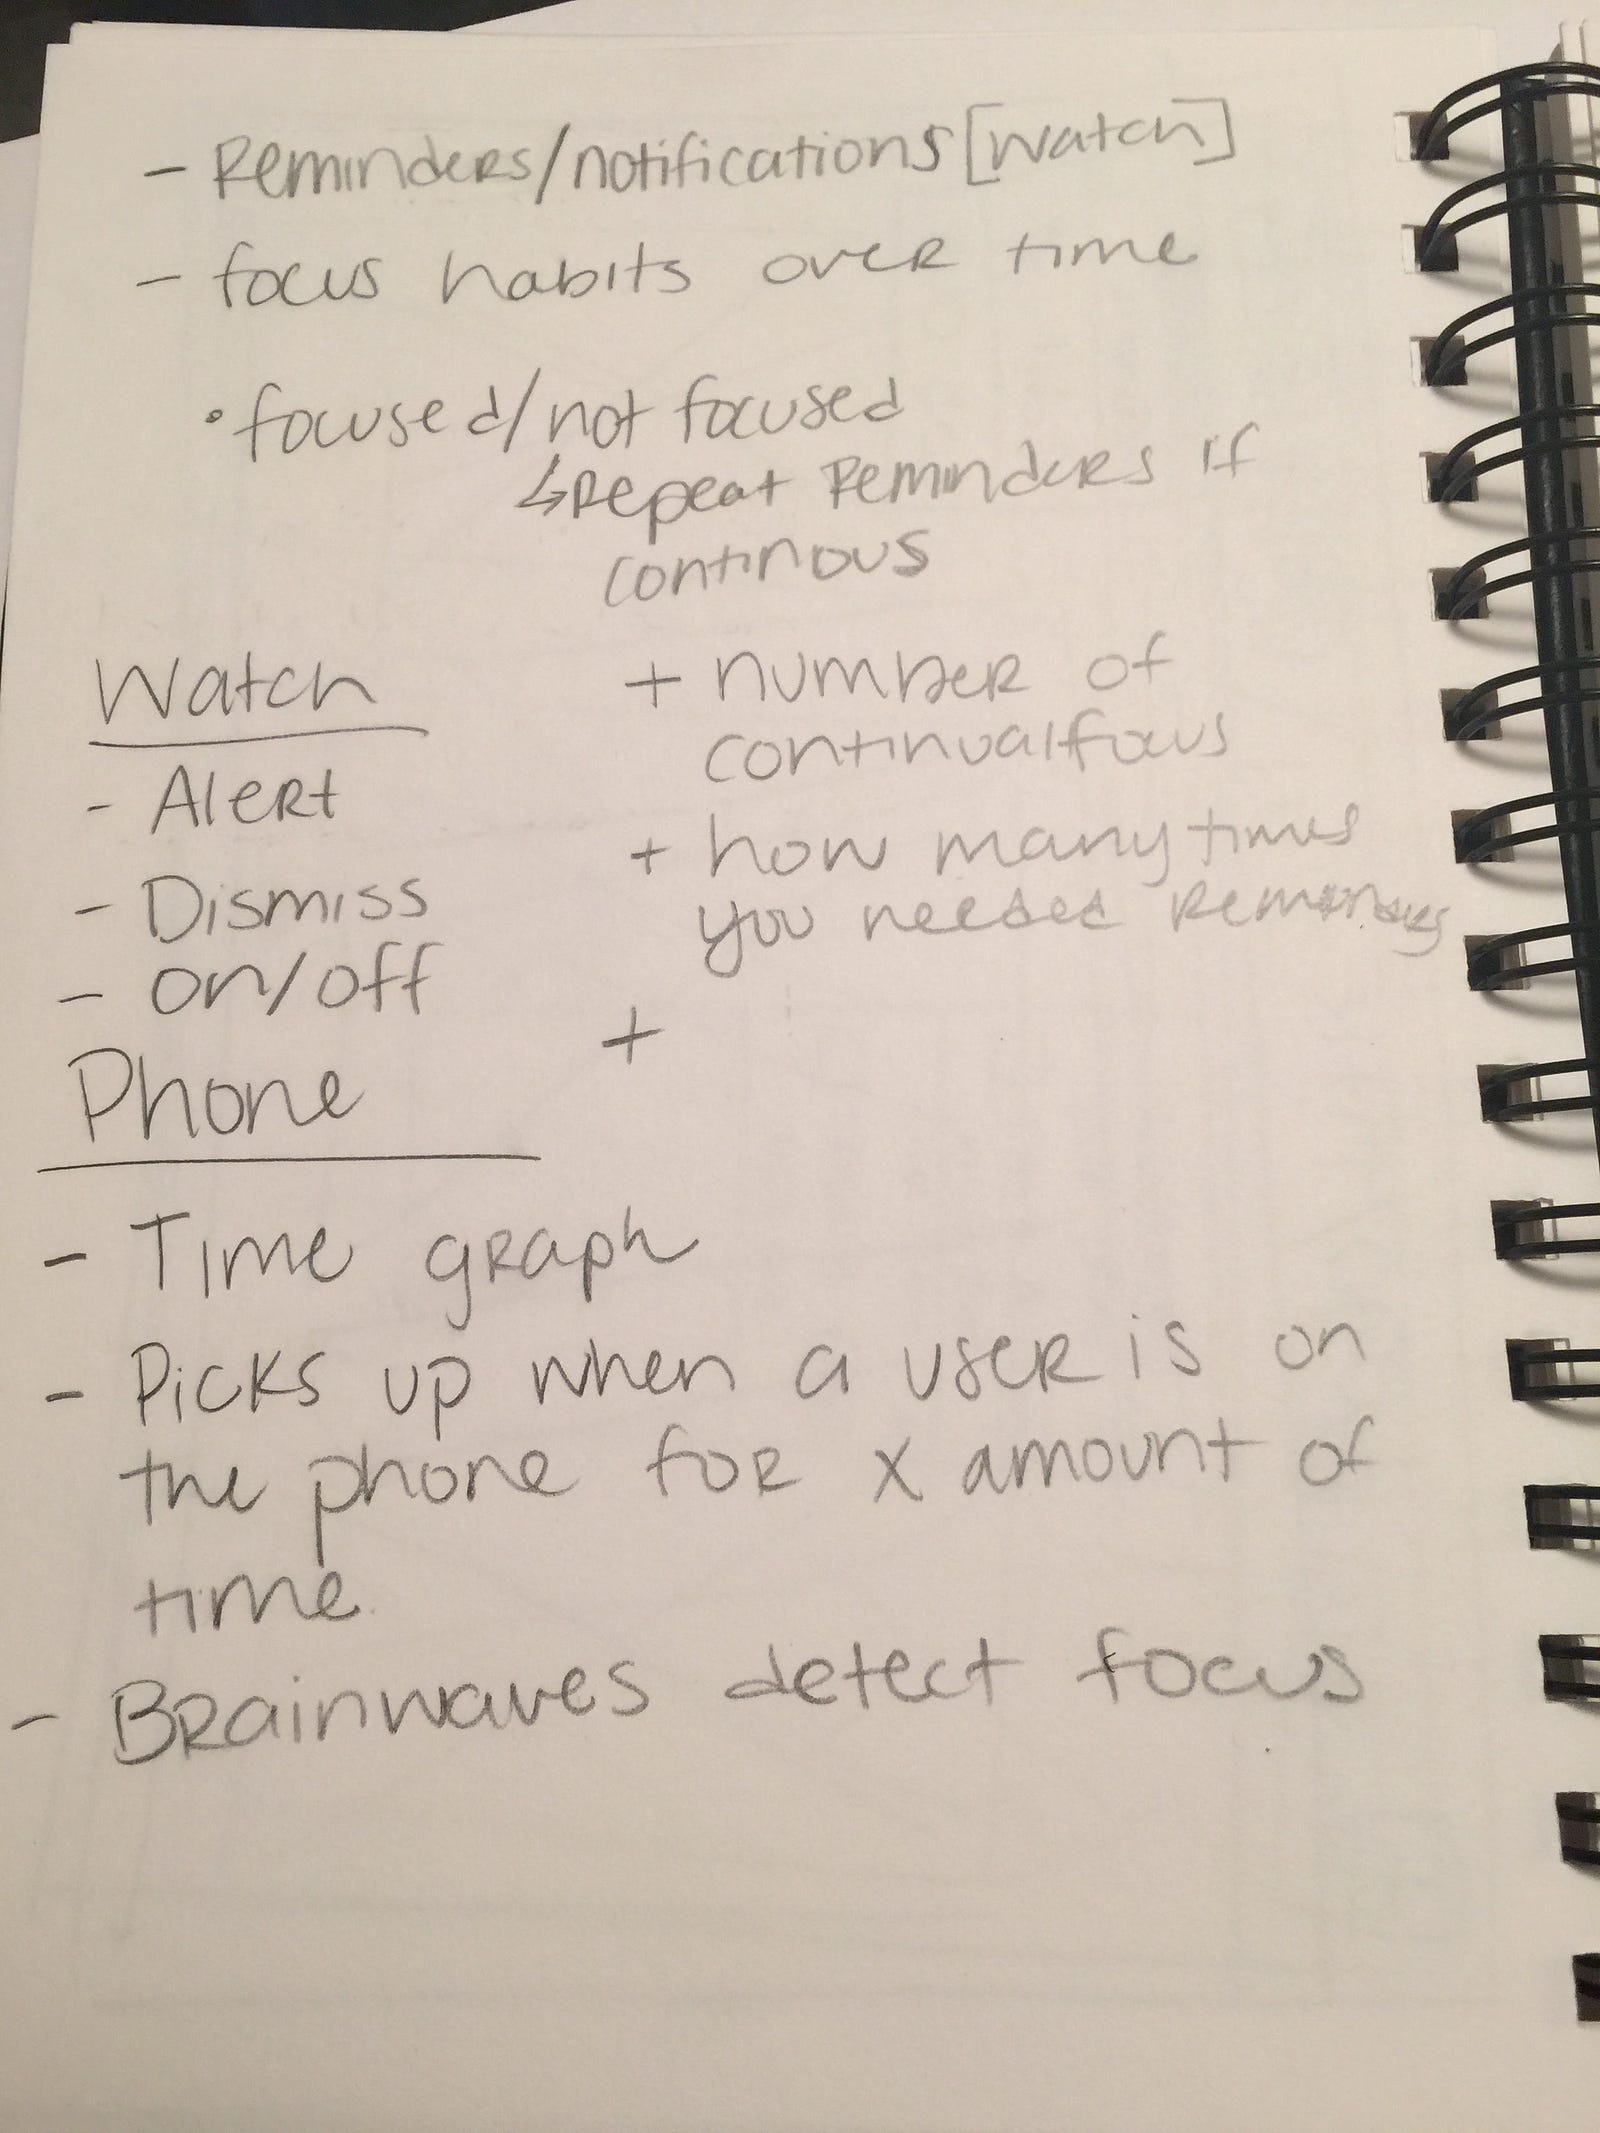 - Reminders/notifications [watch]
- focus habits over time
• focused/not focused
↳ Repeat Reminders if
continous
Watch
- Alert
- Dismiss
- on/off
+ number of
continual focus
+ how many times
you needed Reminders
+
Phone
- Time graph
- Picks up when a user is on
the phone for x amount of
time
- Brainwaves detect focus